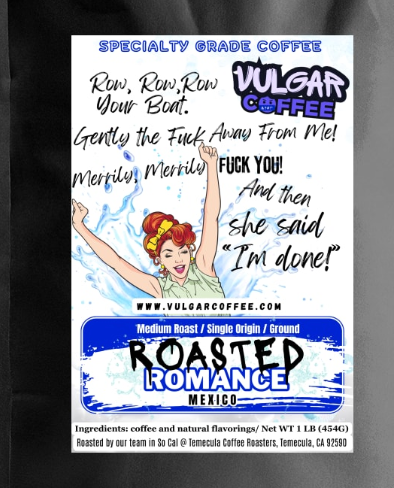 SPECIALTY GRADE COFFEE
Row, Row, Row
Your Boat.
VULGAR
COFFEE
Gently the Fuck Away From Me!
Merrily, Merrily FUCK YOU!
And then
she said
"I'm done!"
WWW.VULGARCOFFEE.COM
Medium Roast / Single Origin / Ground
ROASTED
ROMANCE
MEXICO
Ingredients: coffee and natural flavorings/ Net WT 1 LB (454G)
Roasted by our team in So Cal @ Temecula Coffee Roasters, Temecula, CA 92590